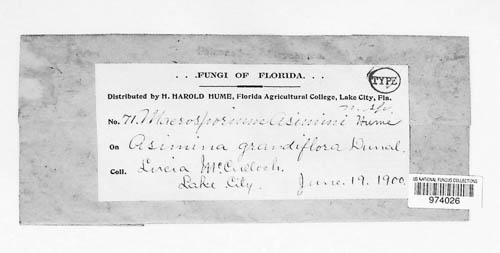 . . .FUNGI OF FLORIDA. . .
TYPE
Distributed by H. HAROLD HUME, Florida Agricultural College, Lake City, Fla.
n. sp.
No. 71. Macrosporium Asimini Hume
On Asimina grandiflora Dunal.
Coll. Lucia McCulloch.
Lake City. June. 19. 1900.
US NATIONAL FUNGUS COLLECTIONS
974026